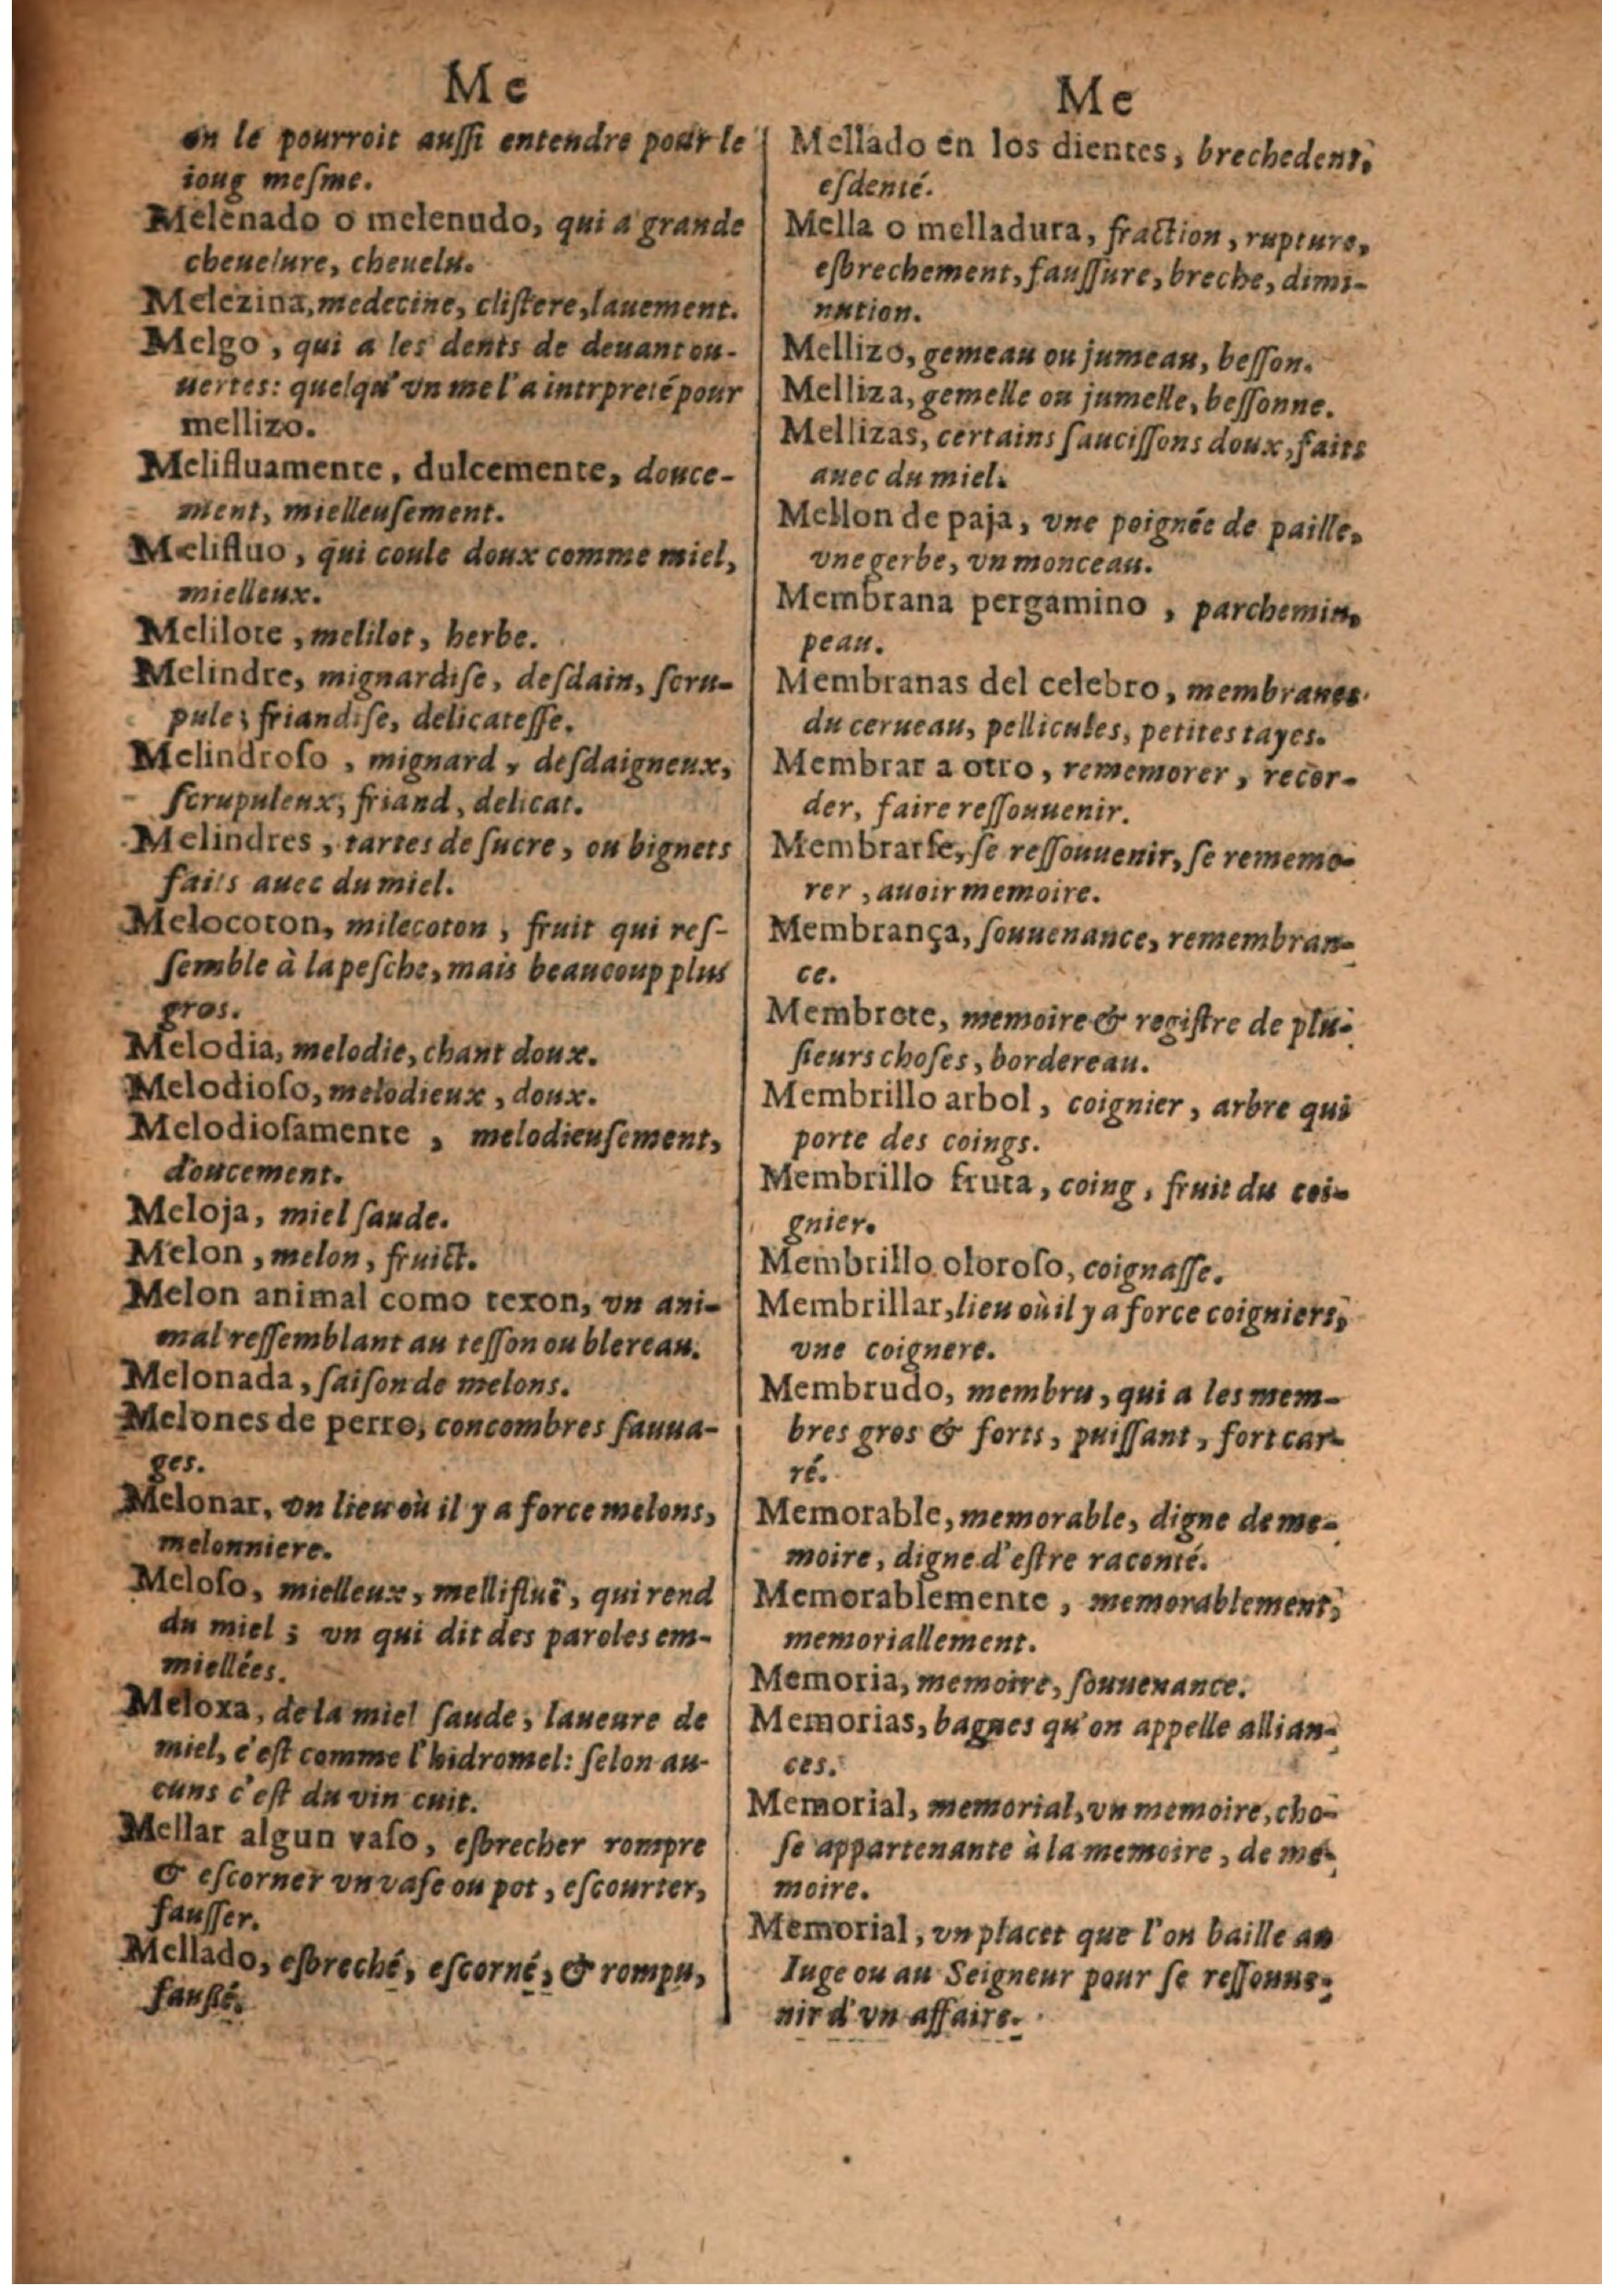 Me
on le pourroit auſſi entendre pour le
ioug meſme.
Melenado o melenudo, qui a grande
cheuelure, cheuelu.
Melezina, medecine, cliſtere, lauement.
Melgo, qui a les dents de deuant ou-
uertes: quelqu'vn me l'a intrpreté pour
mellizo.
Melifluamente, dulcemente, douce-
ment, mielleuſement.
Melifluo, qui coule doux comme miel,
mielleux.
Melilote, melilot, herbe.
Melindre, mignardiſe, deſdain, ſcru-
pule; friandiſe, delicateſſe.
Melindroſo, mignard, deſdaigneux,
ſcrupuleux, friand, delicat.
Melindres, tartes de ſucre, ou bignets
faits auec du miel.
Melocoton, milecoton, fruit qui reſ-
ſemble à la peſche, mais beaucoup plus
gros.
Melodia, melodie, chant doux.
Melodioſo, melodieux, doux.
Melodioſamente, melodieuſement,
doucement.
Meloja, miel ſaude.
Melon, melon, fruict.
Melon animal como texon, vn ani-
mal reſſemblant au teſſon ou blereau.
Melonada, ſaiſon de melons.
Melones de perro, concombres ſauua-
ges.
Melonar, vn lieu où il y a force melons,
melonniere.
Meloſo, mielleux, mellifluë, qui rend
du miel; vn qui dit des paroles em-
miellées.
Meloxa, de la miel ſaude, laueure de
miel, c'eſt comme l'hidromel: ſelon au-
cuns c'eſt du vin cuit.
Mellar algun vaſo, eſbrecher rompre
& eſcorner vn vaſe ou pot, eſcourter,
fauſſer.
Mellado, eſbreché, eſcorné, & rompu,
fauſſé.
Me
Mellado en los dientes, brechedent,
eſdenté.
Mella o melladura, fraction, rupture,
eſbrechement, fauſſure, breche, dimi-
nution.
Mellizo, gemeau ou jumeau, beſſon.
Melliza, gemelle ou jumelle, beſſonne.
Mellizas, certains ſauciſſons doux, faits
auec du miel.
Mellon de paja, vne poignée de paille,
vne gerbe, vn monceau.
Membrana pergamino, parchemin,
peau.
Membranas del celebro, membranes
du cerueau, pellicules, petites tayes.
Membrar a otro, rememorer, recor-
der, faire reſſouuenir.
Membrarſe, ſe reſſouuenir, ſe rememo-
rer, auoir memoire.
Membrança, ſouuenance, remembran-
ce.
Membrete, memoire & regiſtre de plu-
ſieurs choſes, bordereau.
Membrillo arbol, coignier, arbre qui
porte des coings.
Membrillo fruta, coing, fruit du coi-
gnier.
Membrillo oloroſo, coignaſſe.
Membrillar, lieu où il y a force coigniers,
vne coignere.
Membrudo, membru, qui a les mem-
bres gros & forts, puiſſant, fort car-
ré.
Memorable, memorable, digne de me-
moire, digne d'eſtre raconté.
Memorablemente, memorablement,
memoriallement.
Memoria, memoire, ſouuenance.
Memorias, bagues qu'on appelle allian-
ces.
Memorial, memorial, vn memoire, cho-
ſe appartenante à la memoire, de me-
moire.
Memorial, vn placet que l'on baille au
Iuge ou au Seigneur pour ſe reſſouue-
nir d'vn affaire.